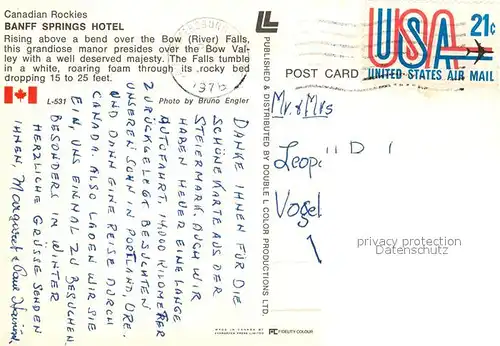 Canadian Rockies
BANFF SPRINGS HOTEL
Rising above a bend over the Bow (River) Falls,
this grandiose manor presides over the Bow Val-
ley with a well deserved majesty. The Falls tumble
in a white, roaring foam through its rocky bed
dropping 15 to 25 feet.
L-531
Photo by Bruno Engler
DANKE IHNEN FÜR DIE
SCHÖNE KARTE AUS DER
STEIERMARK. AUCH WIR
HABEN HEUER EINE LANGE
AUTOFAHRT, 14,000 KILOMETER
ZURÜCKGELEGT BESUCHTEN
UNSEREN SOHN IN PORTLAND, ORE.
UND DANN EINE REISE DURCH
CANADA. ALSO LADEN WIR SIE
EIN, UNS EINMAL ZU BESUCHEN.
BESONDERS IN WINTER
HERZLICHE GRÜSSE SENDEN
IHNEN, Margaret & Paul
PUBLISHED & DISTRIBUTED BY DOUBLE L COLOR PRODUCTIONS LTD.
MADE IN CANADA BY
EVERGREEN PRESS LIMITED
FIDELITY COLOUR
POST CARD
USA 21¢
UNITED STATES AIR MAIL
Mr. & Mrs
Leop
Vogel
privacy protection
Datenschutz